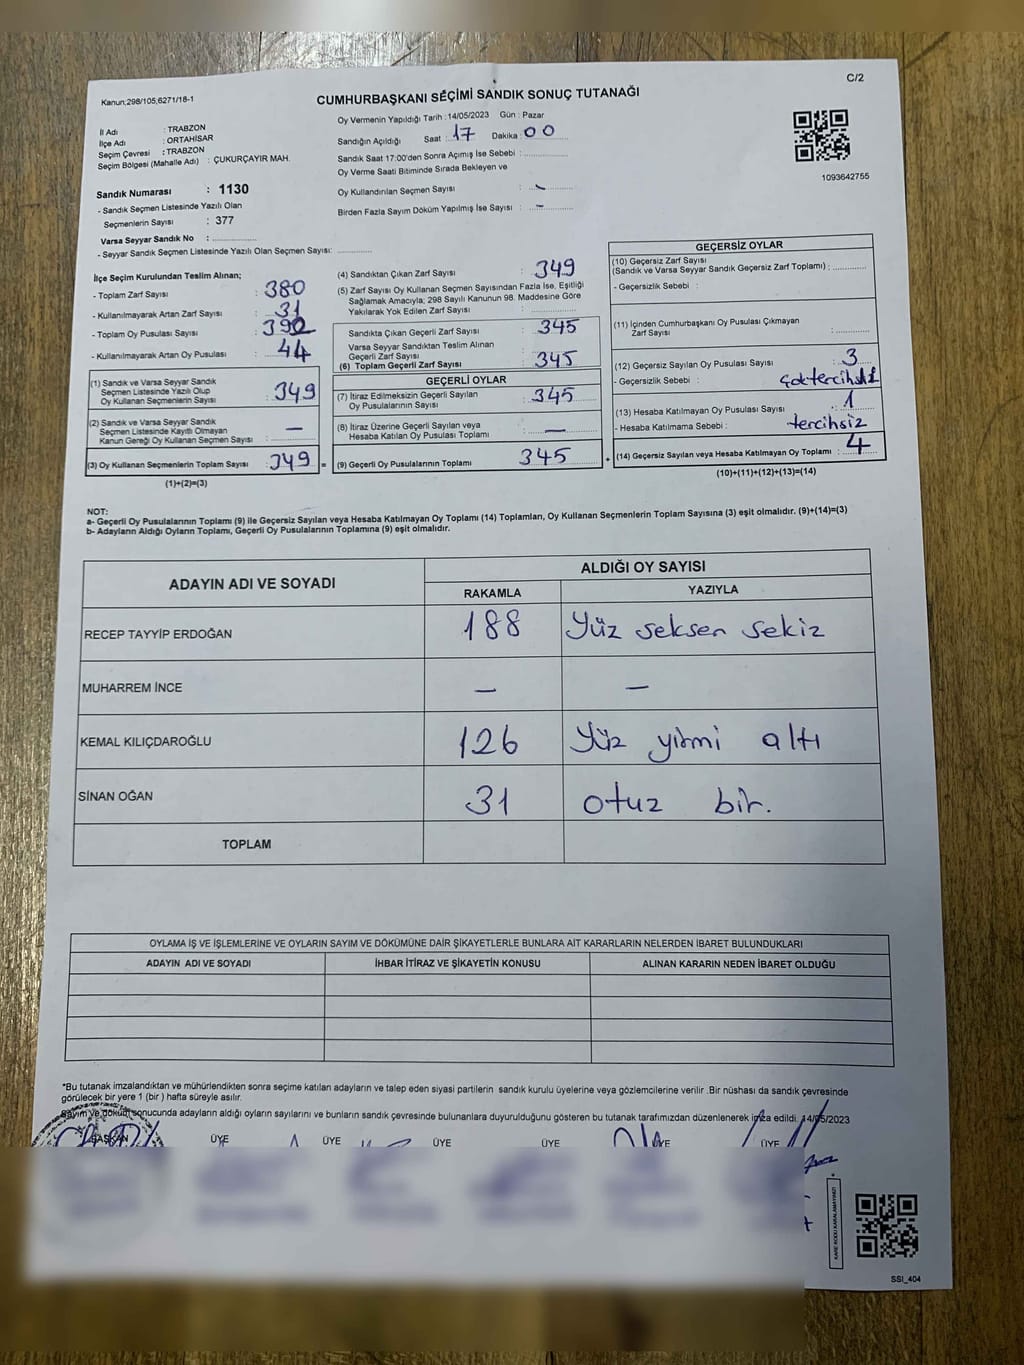 C/2
Kanun;298/105,6271/18-1
CUMHURBAŞKANI SEÇİMİ SANDIK SONUÇ TUTANAĞI
İl Adı : TRABZON
İlçe Adı : ORTAHİSAR
Seçim Çevresi : TRABZON
Seçim Bölgesi (Mahalle Adı) : ÇUKURÇAYIR MAH.
Oy Vermenin Yapıldığı Tarih :14/05/2023 Gün : Pazar
Sandığın Açıldığı Saat : 17 Dakika : 00
Sandık Saat 17:00'den Sonra Açımış İse Sebebi :
Oy Verme Saati Bitiminde Sırada Bekleyen ve
Oy Kullandırılan Seçmen Sayısı : -
Birden Fazla Sayım Döküm Yapılmış İse Sayısı : -
1093642755
Sandık Numarası : 1130
- Sandık Seçmen Listesinde Yazılı Olan
Seçmenlerin Sayısı : 377
Varsa Seyyar Sandık No :
- Seyyar Sandık Seçmen Listesinde Yazılı Olan Seçmen Sayısı:
İlçe Seçim Kurulundan Teslim Alınan;
- Toplam Zarf Sayısı : 380
- Kullanılmayarak Artan Zarf Sayısı : 31
- Toplam Oy Pusulası Sayısı : 390
- Kullanılmayarak Artan Oy Pusulası : 44
(1) Sandık ve Varsa Seyyar Sandık
Seçmen Listesinde Yazılı Olup
Oy Kullanan Seçmenlerin Sayısı : 349
(2) Sandık ve Varsa Seyyar Sandık
Seçmen Listesinde Kayıtlı Olmayan
Kanun Gereği Oy Kullanan Seçmen Sayısı : —
(3) Oy Kullanan Seçmenlerin Toplam Sayısı : 349 =
(1)+(2)=(3)
(4) Sandıktan Çıkan Zarf Sayısı : 349
(5) Zarf Sayısı Oy Kullanan Seçmen Sayısından Fazla İse, Eşitliği
Sağlamak Amacıyla; 298 Sayılı Kanunun 98. Maddesine Göre
Yakılarak Yok Edilen Zarf Sayısı :
Sandıkta Çıkan Geçerli Zarf Sayısı : 345
Varsa Seyyar Sandıktan Teslim Alınan
Geçerli Zarf Sayısı
(6) Toplam Geçerli Zarf Sayısı : 345
GEÇERLİ OYLAR
(7) İtiraz Edilmeksizin Geçerli Sayılan
Oy Pusulalarının Sayısı : 345
(8) İtiraz Üzerine Geçerli Sayılan veya
Hesaba Katılan Oy Pusulası Toplamı : —
(9) Geçerli Oy Pusulalarının Toplamı : 345 +
GEÇERSİZ OYLAR
(10) Geçersiz Zarf Sayısı
(Sandık ve Varsa Seyyar Sandık Geçersiz Zarf Toplamı) :
- Geçersizlik Sebebi :
(11) İçinden Cumhurbaşkanı Oy Pusulası Çıkmayan
Zarf Sayısı :
(12) Geçersiz Sayılan Oy Pusulası Sayısı : 3
- Geçersizlik Sebebi : çoktercihli
(13) Hesaba Katılmayan Oy Pusulası Sayısı : 1
- Hesaba Katılmama Sebebi : tercihsiz
(14) Geçersiz Sayılan veya Hesaba Katılmayan Oy Toplamı : 4
(10)+(11)+(12)+(13)=(14)
NOT:
a- Geçerli Oy Pusulalarının Toplamı (9) ile Geçersiz Sayılan veya Hesaba Katılmayan Oy Toplamı (14) Toplamları, Oy Kullanan Seçmenlerin Toplam Sayısına (3) eşit olmalıdır. (9)+(14)=(3)
b- Adayların Aldığı Oyların Toplamı, Geçerli Oy Pusulalarının Toplamına (9) eşit olmalıdır.
ADAYIN ADI VE SOYADI
ALDIĞI OY SAYISI
RAKAMLA YAZIYLA
RECEP TAYYİP ERDOĞAN 188 Yüz seksen sekiz
MUHARREM İNCE — —
KEMAL KILIÇDAROĞLU 126 Yüz yirmi altı
SİNAN OĞAN 31 otuz bir.
TOPLAM
OYLAMA İŞ VE İŞLEMLERİNE VE OYLARIN SAYIM VE DÖKÜMÜNE DAİR ŞİKAYETLERLE BUNLARA AİT KARARLARIN NELERDEN İBARET BULUNDUKLARI
ADAYIN ADI VE SOYADI İHBAR İTİRAZ VE ŞİKAYETİN KONUSU ALINAN KARARIN NEDEN İBARET OLDUĞU
*Bu tutanak imzalandıktan ve mühürlendikten sonra seçime katılan adayların ve talep eden siyasi partilerin sandık kurulu üyelerine veya gözlemcilerine verilir .Bir nüshası da sandık çevresinde
görülecek bir yere 1 (bir ) hafta süreyle asılır.
Sayım ve döküm sonucunda adayların aldığı oyların sayılarını ve bunların sandık çevresinde bulunanlara duyurulduğunu gösteren bu tutanak tarafımızdan düzenlenerek imza edildi. 14/05/2023
BAŞKAN ÜYE ÜYE ÜYE ÜYE ÜYE ÜYE
KARE KODU KARALAMAYINIZ!
SSİ_404